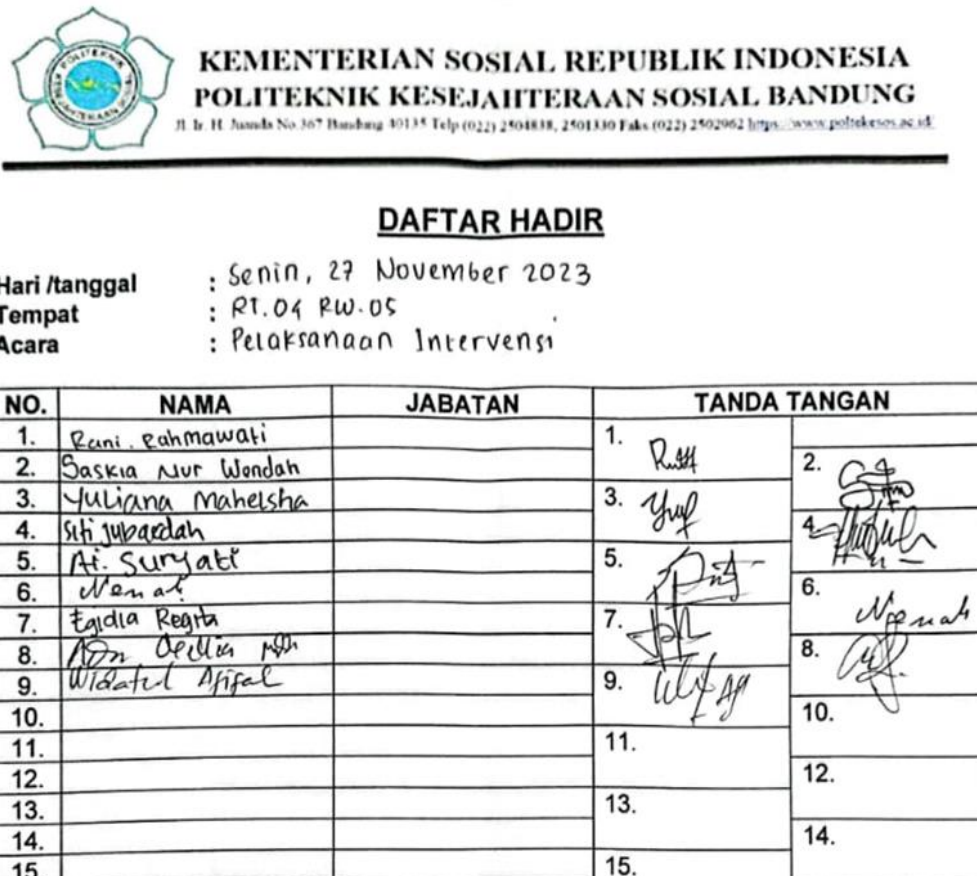 KEMENTERIAN SOSIAL REPUBLIK INDONESIA
POLITEKNIK KESEJAHTERAAN SOSIAL BANDUNG
Jl. Ir. H. Juanda No.367 Bandung 40135 Telp (022) 2504838, 2501330 Faks (022) 2502962 https://www.poltekesos.ac.id/
DAFTAR HADIR
Hari /tanggal : Senin, 27 November 2023
Tempat : RT.04 RW.05
Acara : Pelaksanaan Intervensi
NO. NAMA JABATAN TANDA TANGAN
1. Rani Rahmawati 1.
2. Saskia Nur Wondah 2.
3. Yuliana Mahelsha 3.
4. Siti Jubaedah 4.
5. Ai. Suryati 5.
6. Nenah 6.
7. Egidia Regita 7.
8. 8.
9. Widatul Afifah 9.
10. 10.
11. 11.
12. 12.
13. 13.
14. 14.
15. 15.